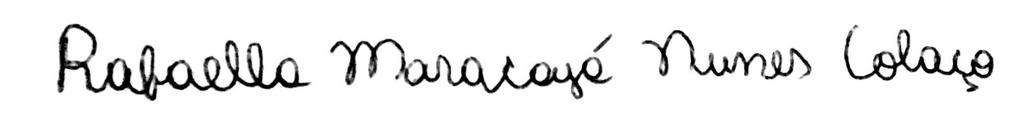 Rafaella Maracayá Nunes Colaço